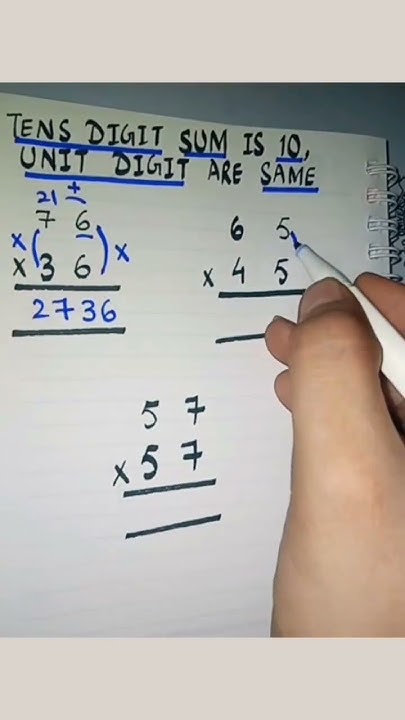 TENS DIGIT SUM IS 10,
UNIT DIGIT ARE SAME
21 +
7 6
x ( ) x
x 3 6
2736
6 5
x 4 5
5 7
x 5 7